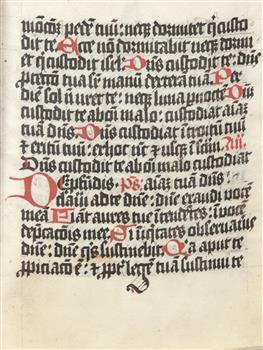 motōem pedem tuū: neqʒ dormitet qͥ custo
dit te Ecce nō dormitabit neqʒ dormi
et qͥ custodit isrl: Dn̄s custodit te: dn̄s
ꝓtectio tua sr̄ manū dexterā tuā Per
diem sol nō uret te: neqʒ luna ꝑ noctē Dn̄s
custodit te ab oī malo: custodiat aīaʒ
tuā dn̄s Dn̄s custodiat ītroitū tuū
et exitū tuū: ex hoc nūc et usqʒ ī sc̄lm An̄.
Dn̄s custodit te ab oī malo custodiat
De ꝓfundis. ps. aīaʒ tuā dn̄s:
clamaui ad te dn̄e: dn̄e exaudi vocē
meā Fiāt aures tue ītēdētes: ī vocē
dep̄cacōis mee Si īiqͥtates obseruaūis
dn̄e: dn̄e qͥs sustinebit Qͣ aput te
ꝓpiciacō ē: et ꝓpt̄ legē tuā sustinui te